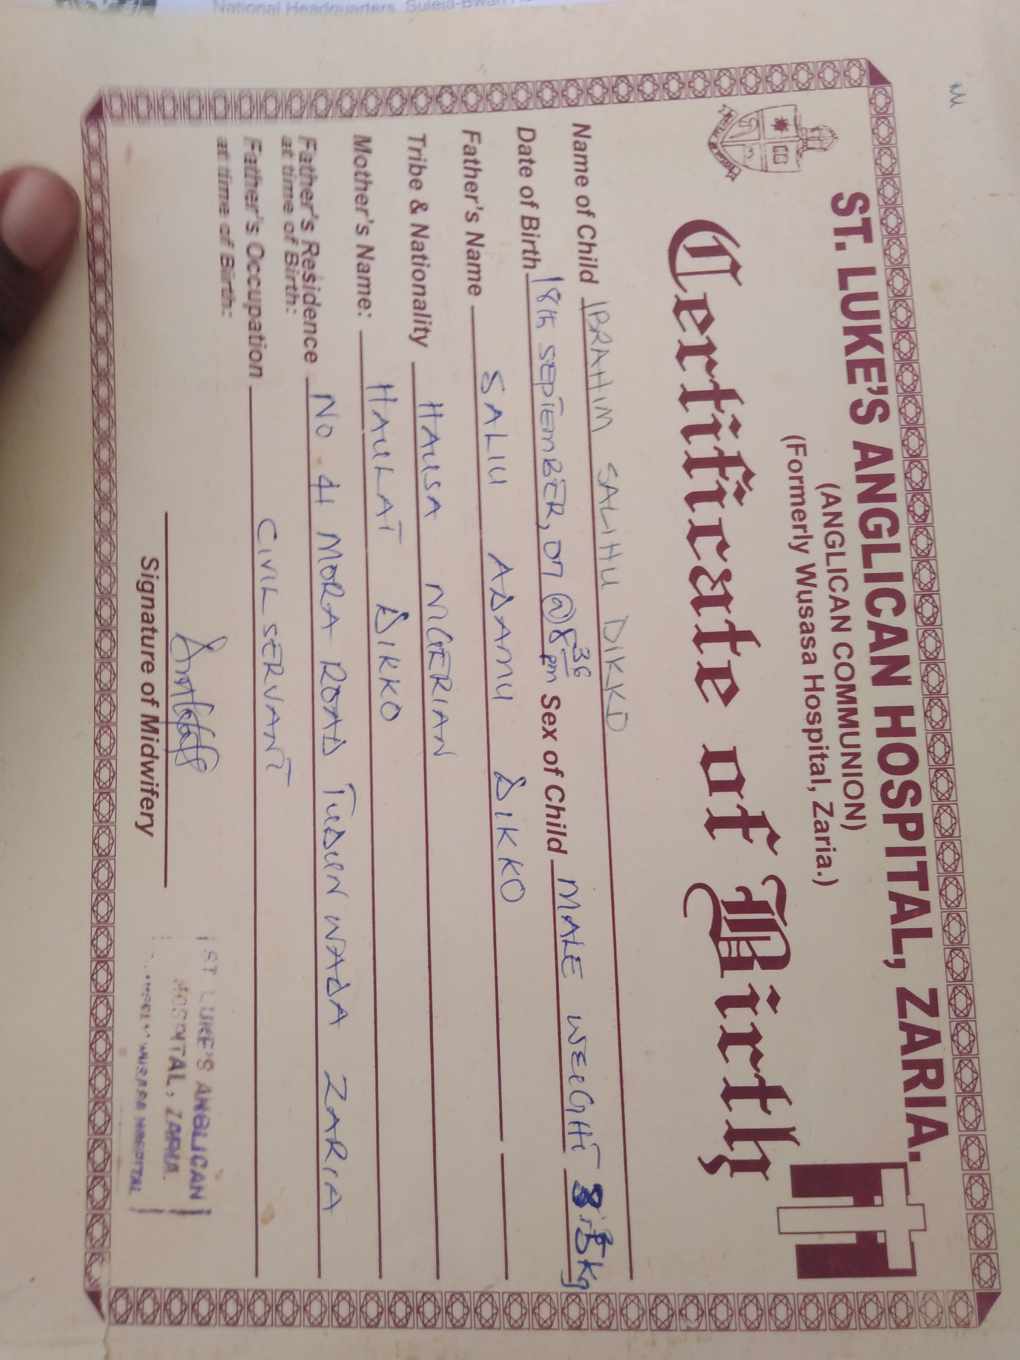 National Headquarters, Suleja-Bwari
ST. LUKE'S ANGLICAN HOSPITAL, ZARIA.
(ANGLICAN COMMUNION)
(Formerly Wusasa Hospital, Zaria.)
Certificate of Birth
Name of Child IBRAHIM SALIHU DIKKO
Date of Birth 18th SEPTEMBER, 07 @ 8 36 pm Sex of Child MALE WEIGHT
Father's Name SALIU ADAMU DIKKO
Tribe & Nationality HAUSA NIGERIAN
Mother's Name: HAULAT DIKKO
Father's Residence at time of Birth: NO. 41 MORA ROAD TUDUN WADA ZARIA
Father's Occupation at time of Birth: CIVIL SERVANT
Signature of Midwifery
ST LUKE'S ANGLICAN
HOSPITAL, ZARIA.
WUSASA HOSPITAL